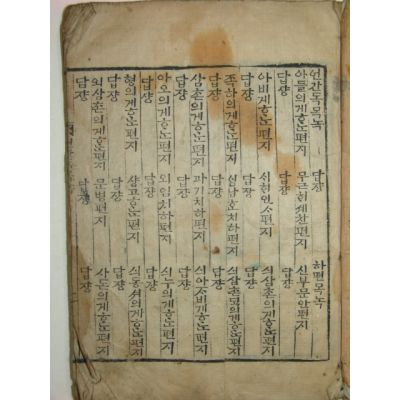 언간독목녹 답쟝 하편목녹
아들의게ᄒᆞᄂᆞᆫ편지 무근ᄒᆡ셰찬편지 신부문안편지
답쟝 답쟝 답쟝
아비게ᄒᆞᄂᆞᆫ편지 신협인ᄉᆞ편지 싀삼촌의게ᄒᆞᄂᆞᆫ편지
답쟝 답쟝 답쟝
족하의게ᄒᆞᄂᆞᆫ편지 치하편지 싀삼촌모의게ᄒᆞᄂᆞᆫ편지
답쟝 답쟝 답쟝
삼촌의게ᄒᆞᄂᆞᆫ편지 과거치하편지 싀아ᄌᆞ비게ᄒᆞᄂᆞᆫ편지
답쟝 답쟝 답쟝
아오의게ᄒᆞᄂᆞᆫ편지 외임치하편지 싀누의게ᄒᆞᄂᆞᆫ편지
답쟝 답쟝 답쟝
형의게ᄒᆞᄂᆞᆫ편지 샹고ᄒᆞᄂᆞᆫ편지 싀동셔의게ᄒᆞᄂᆞᆫ편지
답쟝 답쟝 답쟝
외삼촌의게ᄒᆞᄂᆞᆫ편지 문병편지 사돈의게ᄒᆞᄂᆞᆫ편지
답쟝 답쟝 답쟝